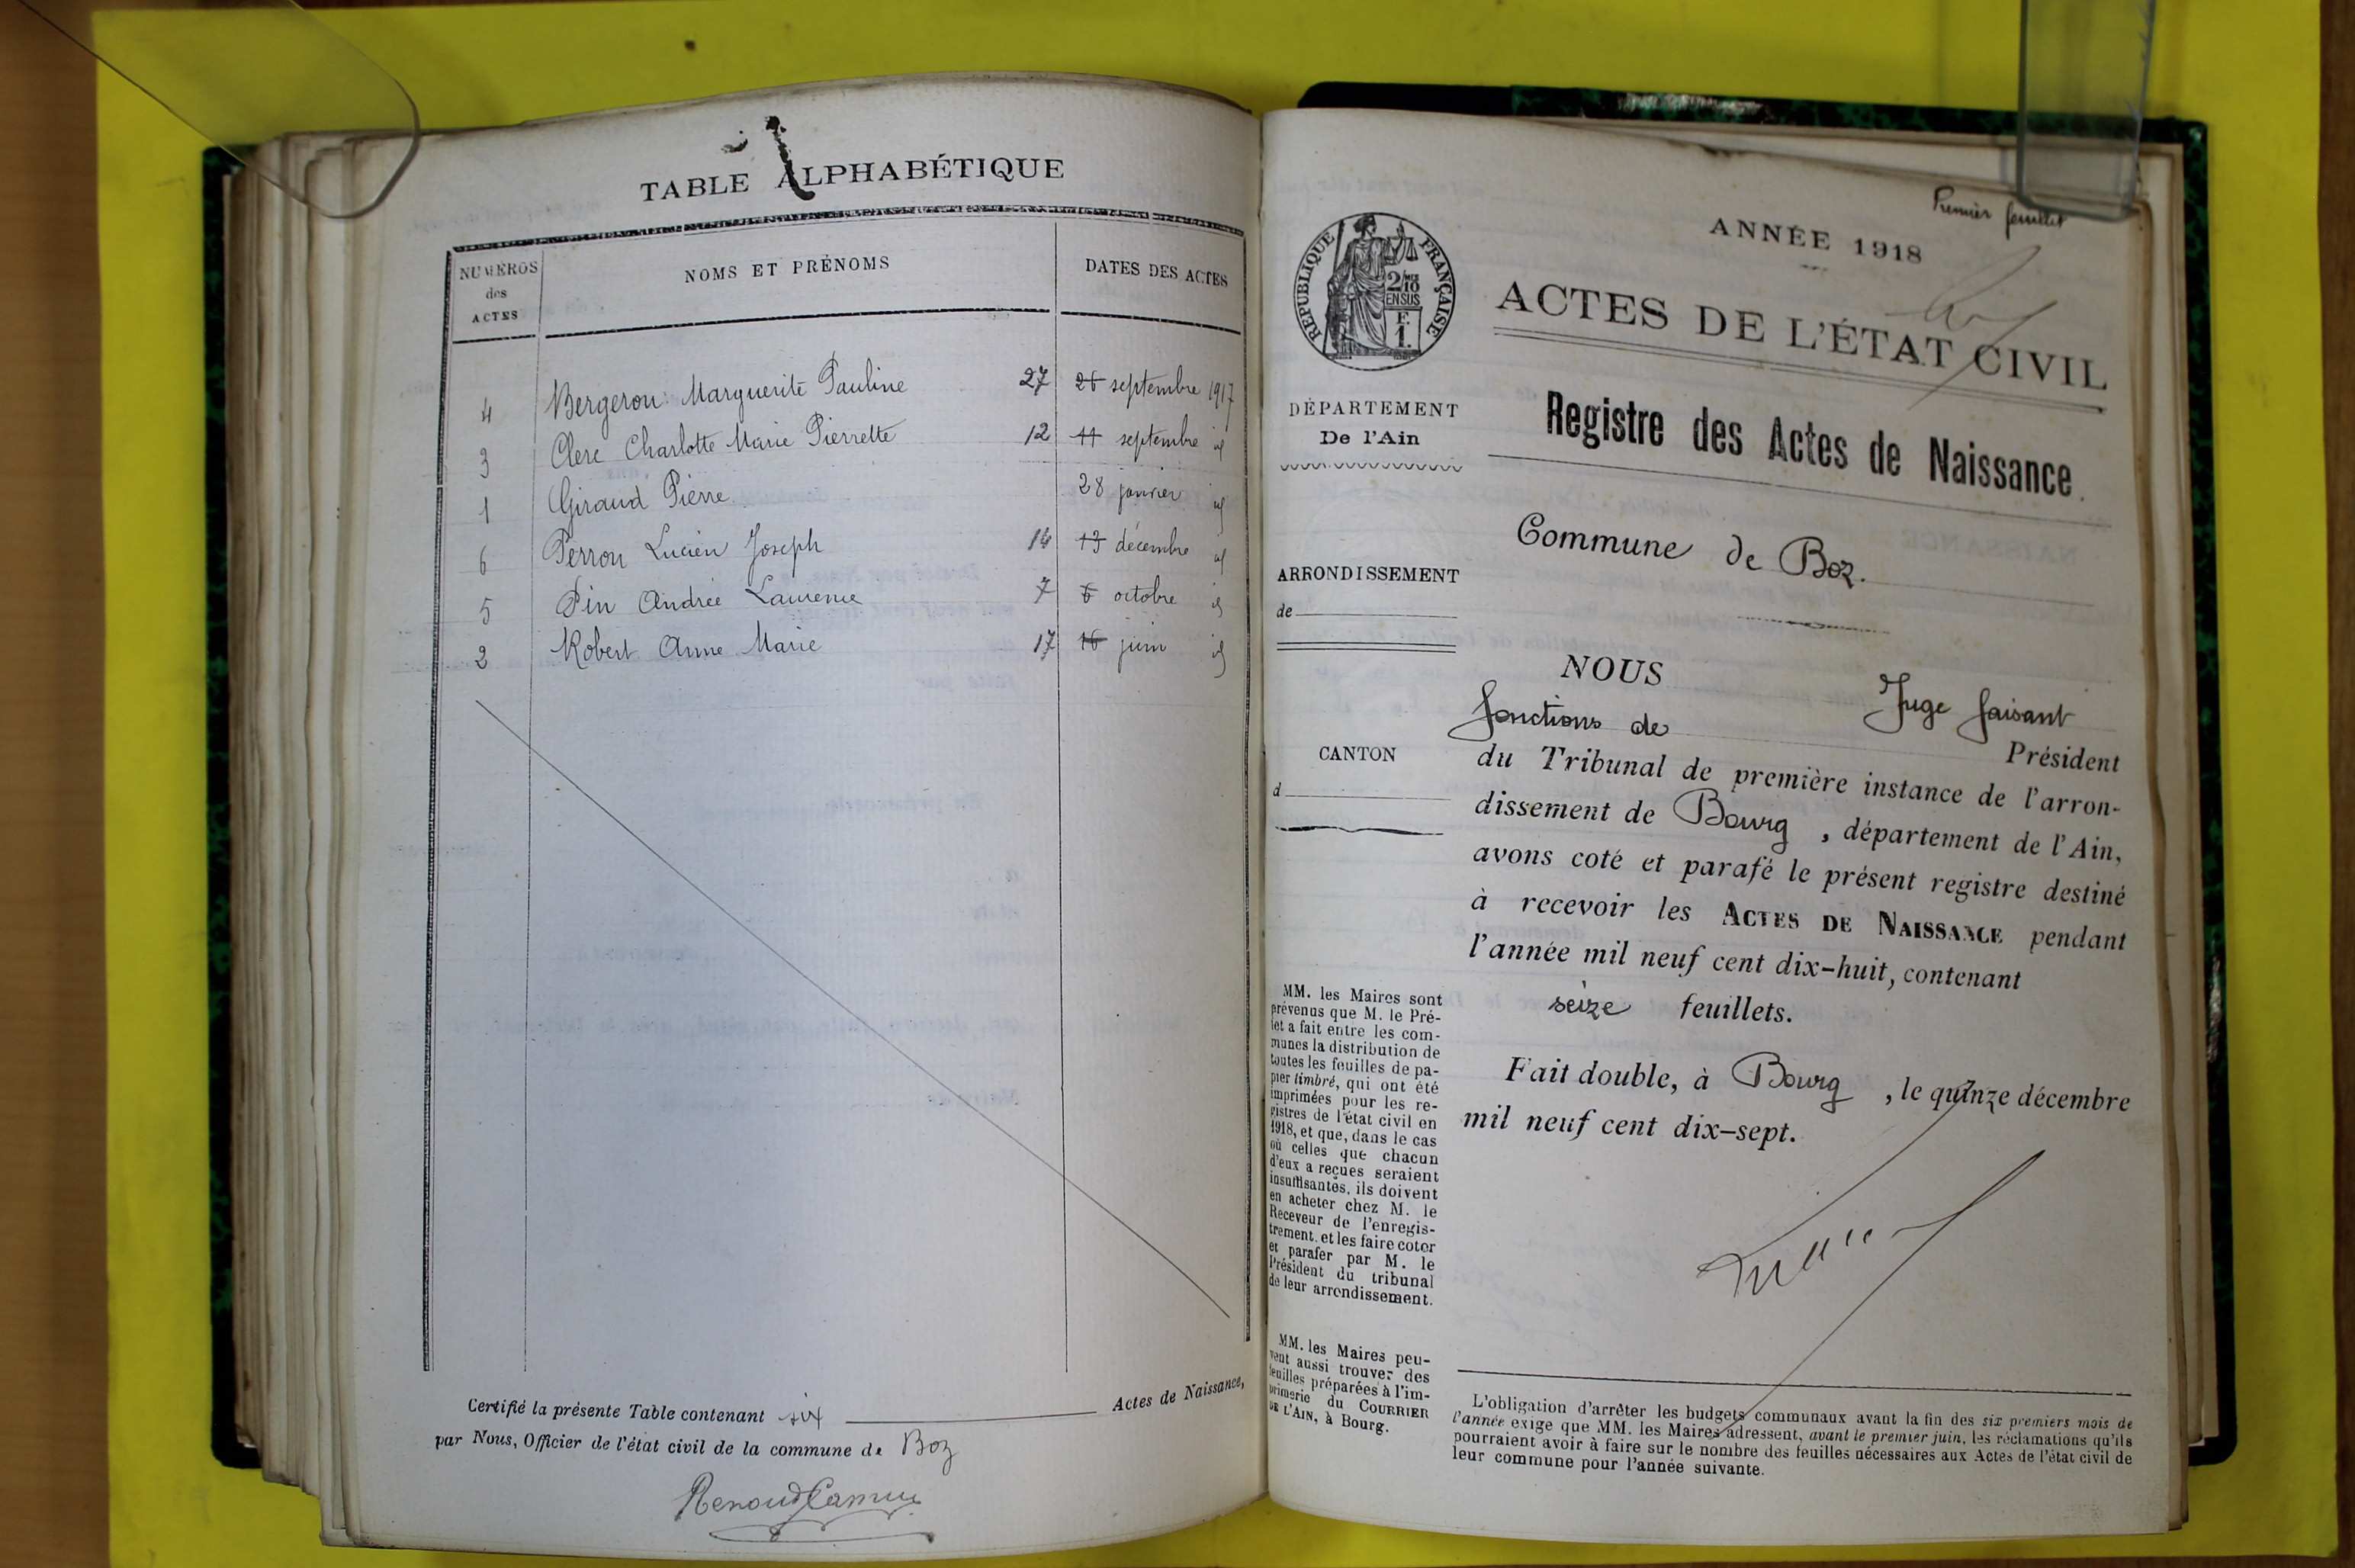 TABLE ALPHABÉTIQUE
NUMÉROS des ACTES
NOMS ET PRÉNOMS
DATES DES ACTES
4 Bergeron Marguerite Pauline 27 26 septembre 1917
3 Clerc Charlotte Marie Pierrette 12 11 septembre id
1 Giraud Pierre 28 janvier id
6 Perron Lucien Joseph 14 13 décembre id
5 Pin Andrée Laurence 7 6 octobre id
2 Robert Anne Marie 17 16 juin id
Certifié la présente Table contenant six Actes de Naissance,
par Nous, Officier de l'état civil de la commune de Boz
Renoud Camus
Premier feuillet
ANNÉE 1918
ACTES DE L'ÉTAT CIVIL
Registre des Actes de Naissance.
Commune de Boz.
RÉPUBLIQUE FRANÇAISE
2/10
EN SUS
F.
1.
DÉPARTEMENT
De l'Ain
ARRONDISSEMENT
de
CANTON
d
NOUS Juge faisant
fonctions de Président
du Tribunal de première instance de l'arron-
dissement de Bourg, département de l'Ain,
avons coté et parafé le présent registre destiné
à recevoir les ACTES DE NAISSANCE pendant
l'année mil neuf cent dix-huit, contenant
seize feuillets.
Fait double, à Bourg, le quinze décembre
mil neuf cent dix-sept.
MM. les Maires sont
prévenus que M. le Pré-
fet a fait entre les com-
munes la distribution de
toutes les feuilles de pa-
pier timbré, qui ont été
imprimées pour les re-
gistres de l'état civil en
1918, et que, dans le cas
où celles que chacun
d'eux a reçues seraient
insuffisantes, ils doivent
en acheter chez M. le
Receveur de l'enregis-
trement, et les faire coter
et parafer par M. le
Président du tribunal
de leur arrondissement.
MM. les Maires peu-
vent aussi trouver des
feuilles préparées à l'im-
primerie du COURRIER
DE L'AIN, à Bourg.
L'obligation d'arrêter les budgets communaux avant la fin des six premiers mois de
l'année exige que MM. les Maires adressent, avant le premier juin, les réclamations qu'ils
pourraient avoir à faire sur le nombre des feuilles nécessaires aux Actes de l'état civil de
leur commune pour l'année suivante.